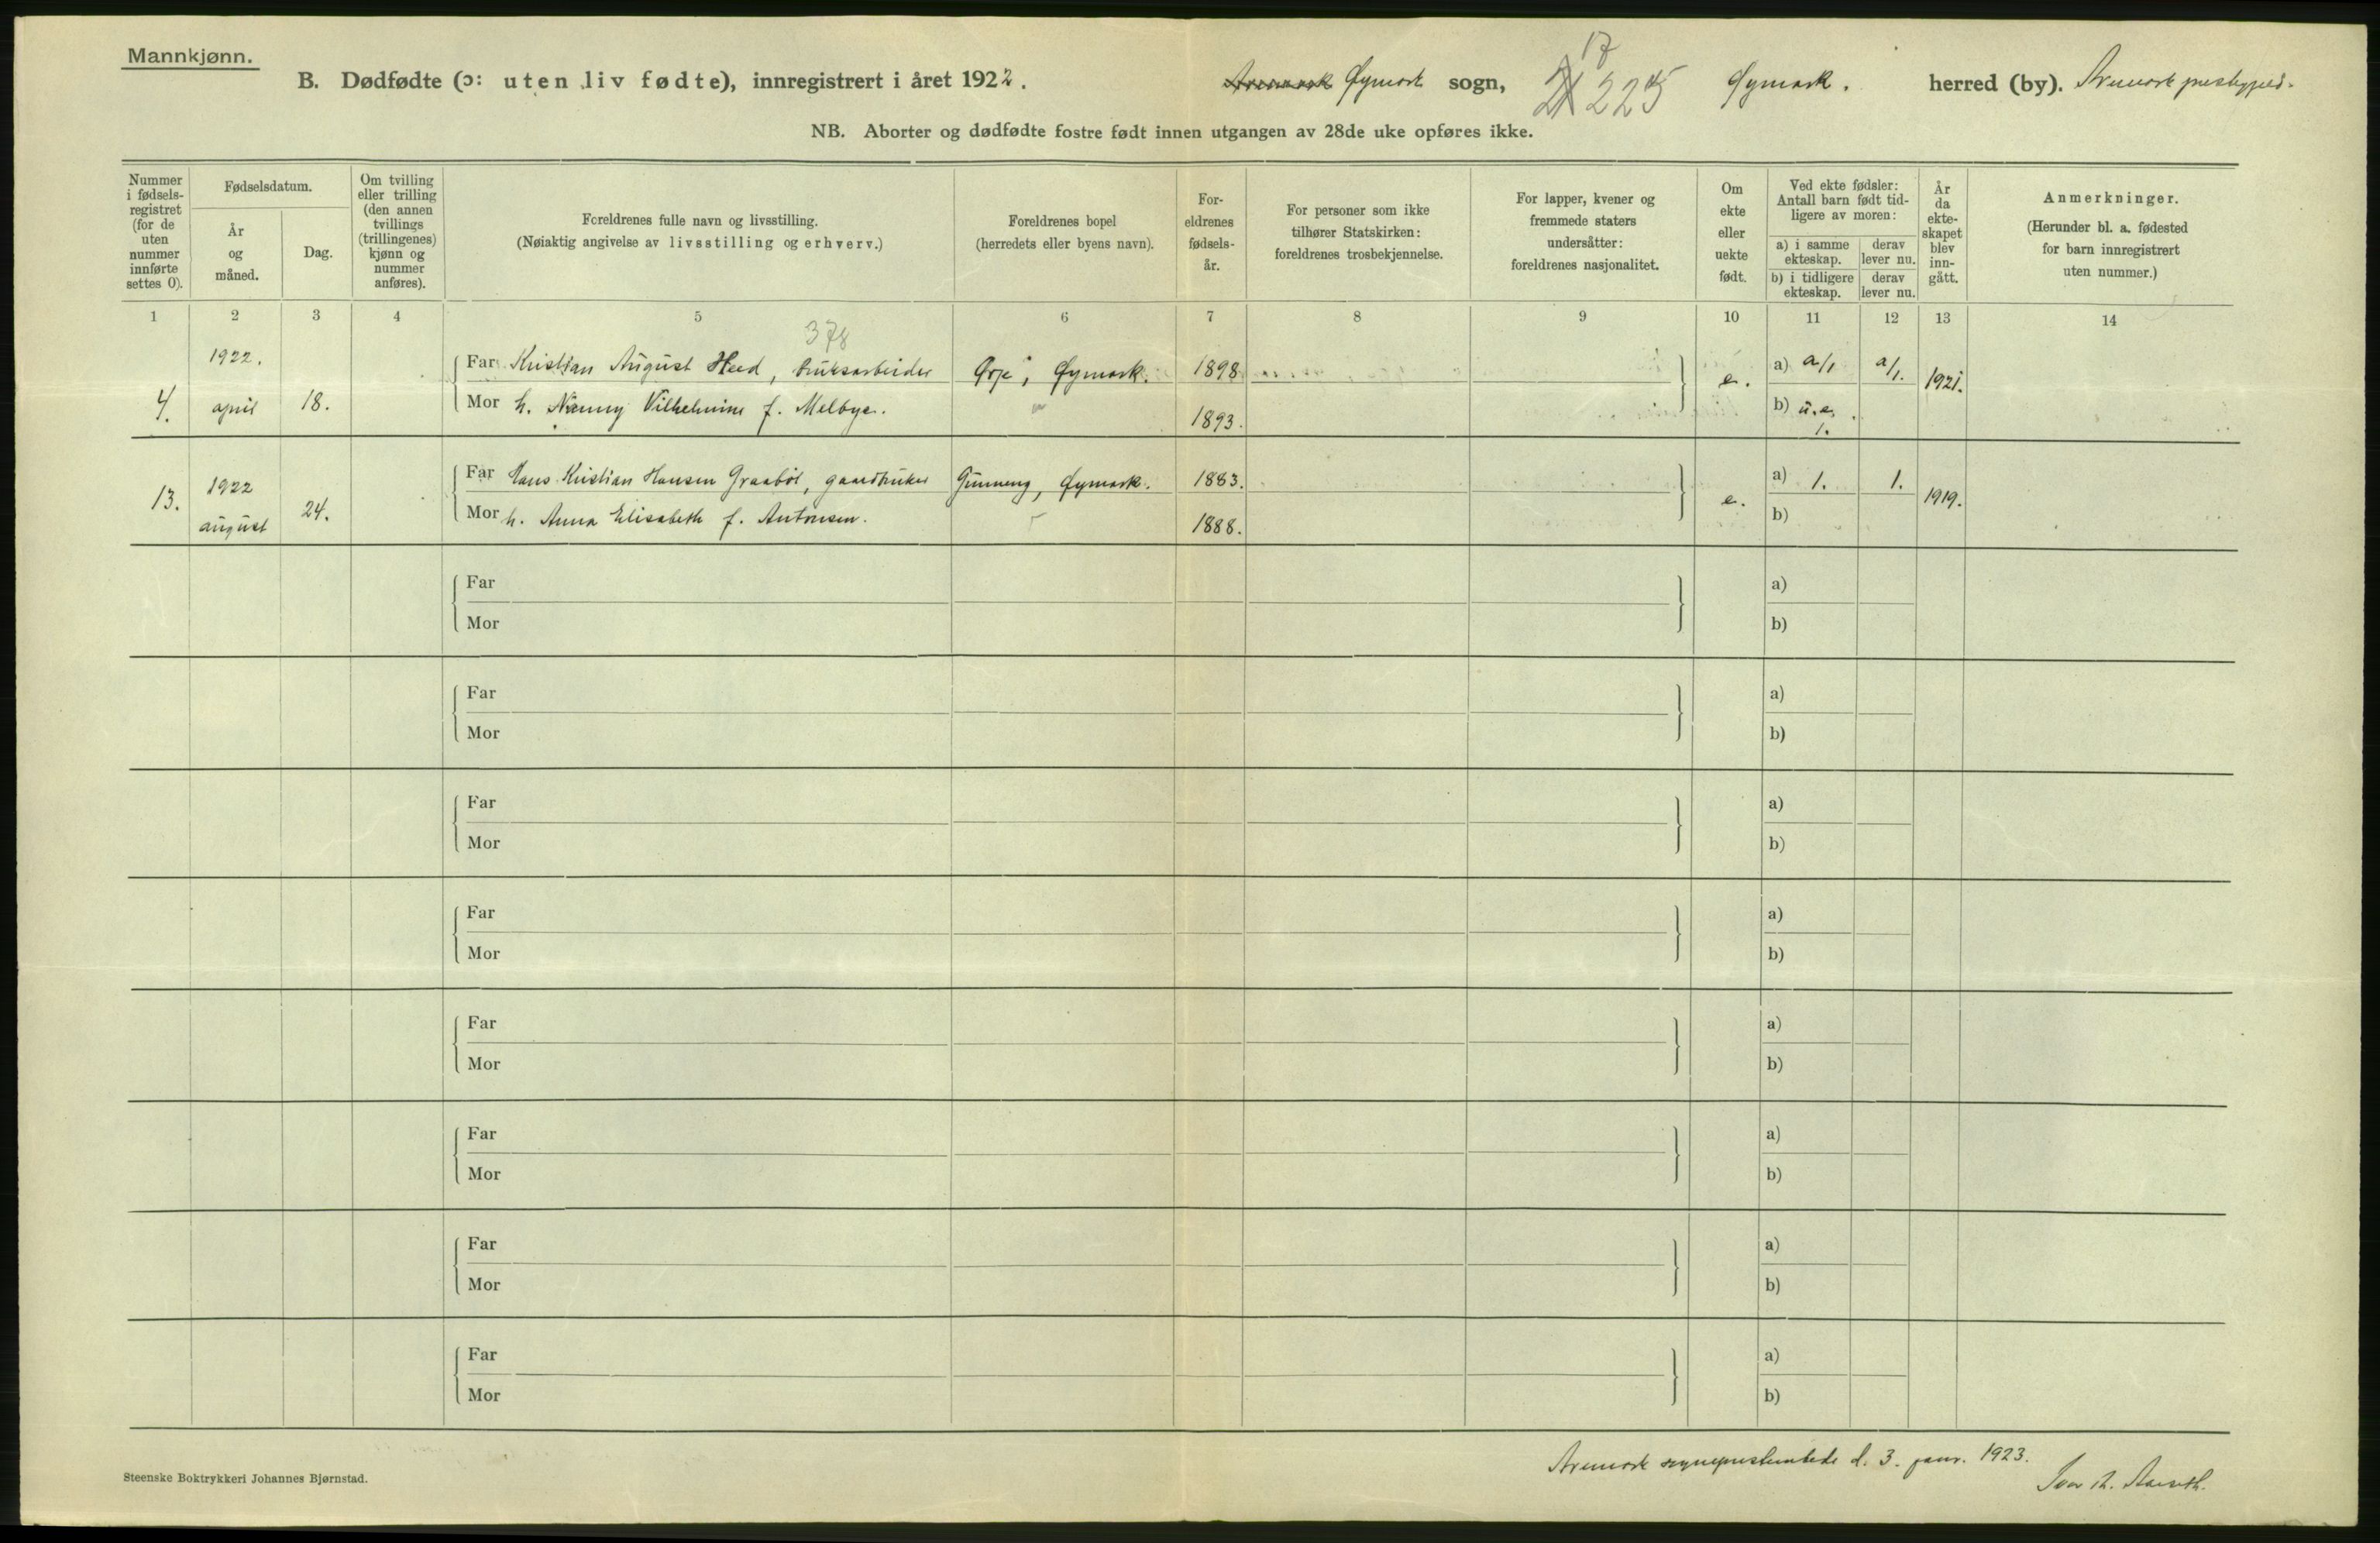 Mannkjønn.
B. Dødfødte (ɔ: uten liv fødte), innregistrert i året 1922. Aremark Øymark sogn, 17 225 Øymark. herred (by). Aremark prestegjeld.
NB. Aborter og dødfødte fostre født innen utgangen av 28de uke opføres ikke.
Nummer i fødsels-registret (for de uten nummer innførte settes 0).
Fødselsdatum.
År og måned.
Dag.
Om tvilling eller trilling (den annen tvillings (trillingenes) kjønn og nummer anføres).
Foreldrenes fulle navn og livsstilling.
(Nøiaktig angivelse av livsstilling og erhverv.)
Foreldrenes bopel
(herredets eller byens navn).
For-eldrenes fødsels-år.
For personer som ikke tilhører Statskirken: foreldrenes trosbekjennelse.
For lapper, kvener og fremmede staters undersåtter: foreldrenes nasjonalitet.
Om ekte eller uekte født.
Ved ekte fødsler: Antall barn født tid-ligere av moren:
a) i samme ekteskap.
derav lever nu.
b) i tidligere ekteskap.
derav lever nu.
År da ekte-skapet blev inn-gått.
Anmerkninger.
(Herunder bl. a. fødested for barn innregistrert uten nummer.)
1 2 3 4 5 6 7 8 9 10 11 12 13 14
378
1922.
Far Kristian August Heed, bruksarbeider Ørje, Øymark. 1898 a) a/1 a/1.
4. april 18. e. 1921.
Mor h. Nanny Vilhelmine f. Melbye. " 1893. b) u.e. 1.
Far Hans Kristian Hansen Graabøl, gaardbruker Gunneng, Øymark. 1883. a) 1. 1.
13. 1922 august 24. e. 1919.
Mor h. Anna Elisabeth f. Antonsen. " 1888. b)
Far a)
Mor b)
Far a)
Mor b)
Far a)
Mor b)
Far a)
Mor b)
Far a)
Mor b)
Far a)
Mor b)
Far a)
Mor b)
Far a)
Mor b)
Steenske Boktrykkeri Johannes Bjørnstad.
Aremark sogneprestembede d. 3. janr. 1923.